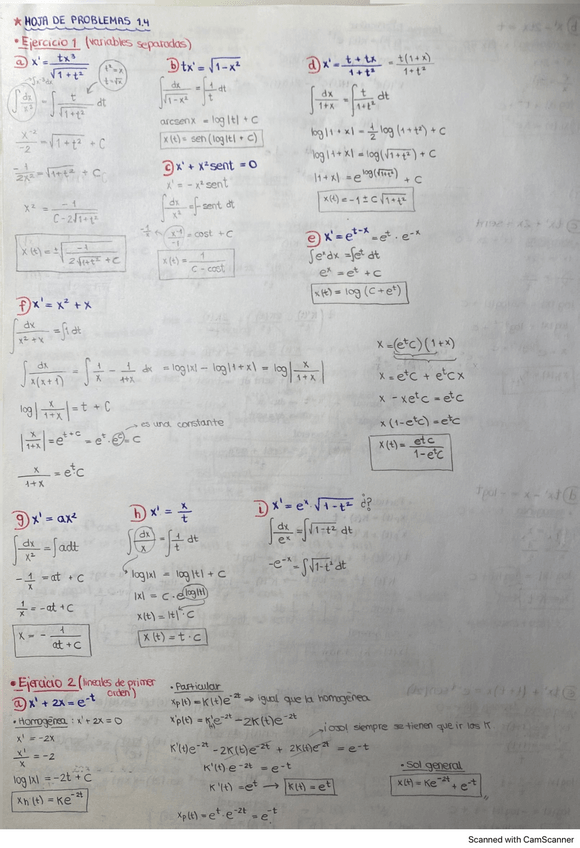 ★ HOJA DE PROBLEMAS 1.4
• Ejercicio 1 (variables separadas)
a) x' = tx³/√(1+t²)
t² = x
t = √x
∫ dx/x³ = ∫ t/√(1+t²) dt
x⁻²/-2 = √(1+t²) + C
-1/2x² = √(1+t²) + C
x² = -1/(C-2√(1+t²))
x(t) = ±√(-1/(2√(1+t²) + C))
b) tx' = √(1-x²)
∫ dx/√(1-x²) = ∫ 1/t dt
arcsenx = log|t| + C
x(t) = sen(log|t| + C)
c) x' + x²sent = 0
x' = -x²sent
∫ dx/x² = ∫-sent dt
-1/x ← x⁻¹/-1 = cost + C
x(t) = 1/(C-cost)
d) x' = (t + tx)/(1+t²) = t(1+x)/(1+t²)
∫ dx/(1+x) = ∫ t/(1+t²) dt
log|1+x| = 1/2 log(1+t²) + C
log|1+x| = log(√(1+t²)) + C
|1+x| = e^(log(√(1+t²))) + C
x(t) = -1 ± C√(1+t²)
e) x' = e^(t-x) = e^t · e^-x
∫e^x dx = ∫e^t dt
e^x = e^t + C
x(t) = log(C+e^t)
f) x' = x² + x
∫ dx/(x²+x) = ∫1 dt
∫ dx/(x(x+1)) = ∫ 1/x - 1/(1+x) dx = log|x| - log|1+x| = log|x/(1+x)|
log|x/(1+x)| = t + C
→ es una constante
|x/(1+x)| = e^(t+c) = e^t · e^c = C
x/(1+x) = e^t C
x = (e^t C)(1+x)
x = e^t C + e^t C x
x - xe^t C = e^t C
x(1-e^t C) = e^t C
x(t) = e^t C/(1-e^t C)
g) x' = ax²
∫ dx/x² = ∫ adt
-1/x = at + C
1/x = -at + C
x = - 1/(at + C)
h) x' = x/t
∫ dx/x = ∫ 1/t dt
log|x| = log|t| + C
|x| = C · e^(log|t|)
x(t) = |t| · C
x(t) = t · C
i) x' = e^x · √(1-t²) ¿?
∫ dx/e^x = ∫√(1-t²) dt
-e^-x = ∫√(1-t²) dt
• Ejercicio 2 (lineales de primer orden)
a) x' + 2x = e^-t
• Homogénea: x' + 2x = 0
x' = -2x
x'/x = -2
log|x| = -2t + C
xh(t) = Ke^-2t
• Particular
xp(t) = K(t)e^-2t → igual que la homogénea
x'p(t) = K'e^-2t - 2K(t)e^-2t
→ ¡ojo! siempre se tienen que ir los K.
K'(t)e^-2t - 2K(t)e^-2t + 2K(t)e^-2t = e^-t
K'(t)e^-2t = e^-t
K'(t) = e^t → K(t) = e^t
xp(t) = e^t · e^-2t = e^-t
• Sol general
x(t) = Ke^-2t + e^-t
Scanned with CamScanner